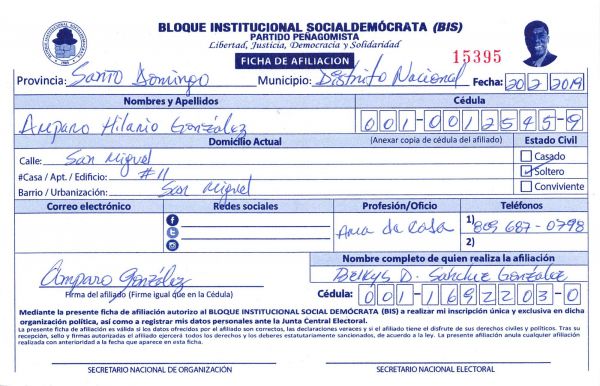 BLOQUE INSTITUCIONAL SOCIALDEMÓCRATA (BIS)
PARTIDO PEÑAGOMISTA
Libertad, Justicia, Democracia y Solidaridad
FICHA DE AFILIACION
15395
Provincia: Santo Domingo Municipio: Distrito Nacional Fecha: 20 2 2019
Nombres y Apellidos Cédula
Amparo Hilario González 001-0012545-9
Domicilio Actual (Anexar copia de cédula del afiliado) Estado Civil
Calle: San Miguel Casado
#Casa / Apt. / Edificio: #11 Soltero
Barrio / Urbanización: San Miguel Conviviente
Correo electrónico Redes sociales Profesión/Oficio Teléfonos
Ama de casa 1) 809 687-0798
2)
Nombre completo de quien realiza la afiliación
Amparo González Belkys D. Sanchez González
Firma del afiliado (Firme igual que en la Cédula) Cédula: 001-1692203-0
Mediante la presente ficha de afiliación autorizo al BLOQUE INSTITUCIONAL SOCIAL DEMÓCRATA (BIS) a realizar mi inscripción única y exclusiva en dicha
organización política, así como a registrar mis datos personales ante la Junta Central Electoral.
La presente ficha de afiliación es válida si los datos ofrecidos por el afiliado son correctos, las declaraciones veraces y si el afiliado tiene el disfrute de sus derechos civiles y políticos. Tras su
recepción, sello y firmas autorizadas el afiliado ejercerá todos los derechos y los deberes estatutariamente sancionados, de acuerdo a la ley. La presente afiliación anula cualquier afiliación
realizada con anterioridad a la fecha que aparece en esta ficha.
SECRETARIO NACIONAL DE ORGANIZACIÓN SECRETARIO NACIONAL ELECTORAL